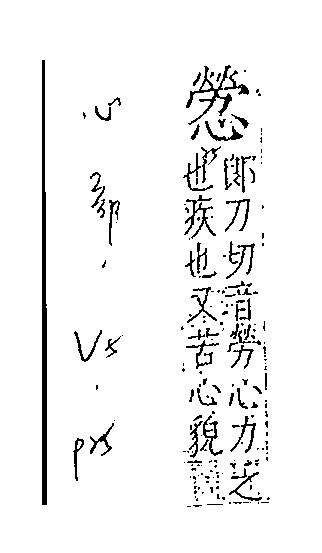 憥
郎刀切音勞心力乏
也疾也又苦心貌
心部